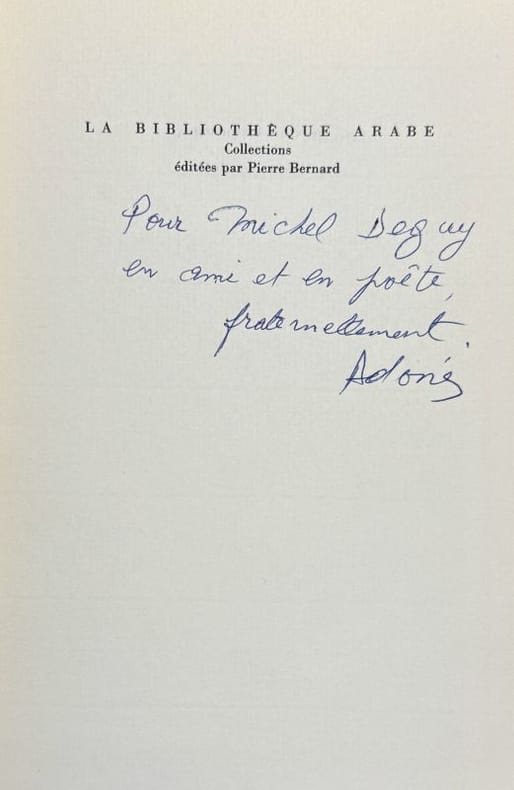 LA BIBLIOTHÈQUE ARABE
Collections
éditées par Pierre Bernard
Pour Michel Deguy
en ami et en poète,
fraternellement.
Adonis